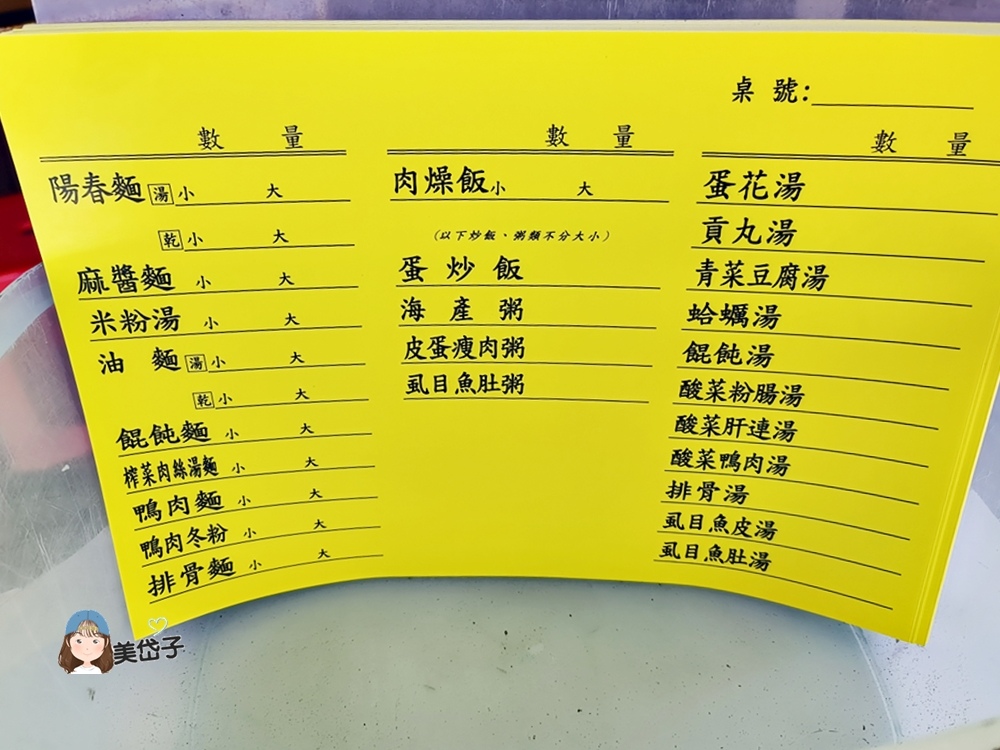 桌號:
數量
陽春麵 湯 小 大
乾 小 大
麻醬麵 小 大
米粉湯 小 大
油麵 湯 小 大
乾 小 大
餛飩麵 小 大
榨菜肉絲湯麵 小 大
鴨肉麵 小 大
鴨肉冬粉 小 大
排骨麵 小 大
數量
肉燥飯 小 大
(以下炒飯、粥類不分大小)
蛋炒飯
海產粥
皮蛋瘦肉粥
虱目魚肚粥
數量
蛋花湯
貢丸湯
青菜豆腐湯
蛤蠣湯
餛飩湯
酸菜粉腸湯
酸菜肝連湯
酸菜鴨肉湯
排骨湯
虱目魚皮湯
虱目魚肚湯
美岱子